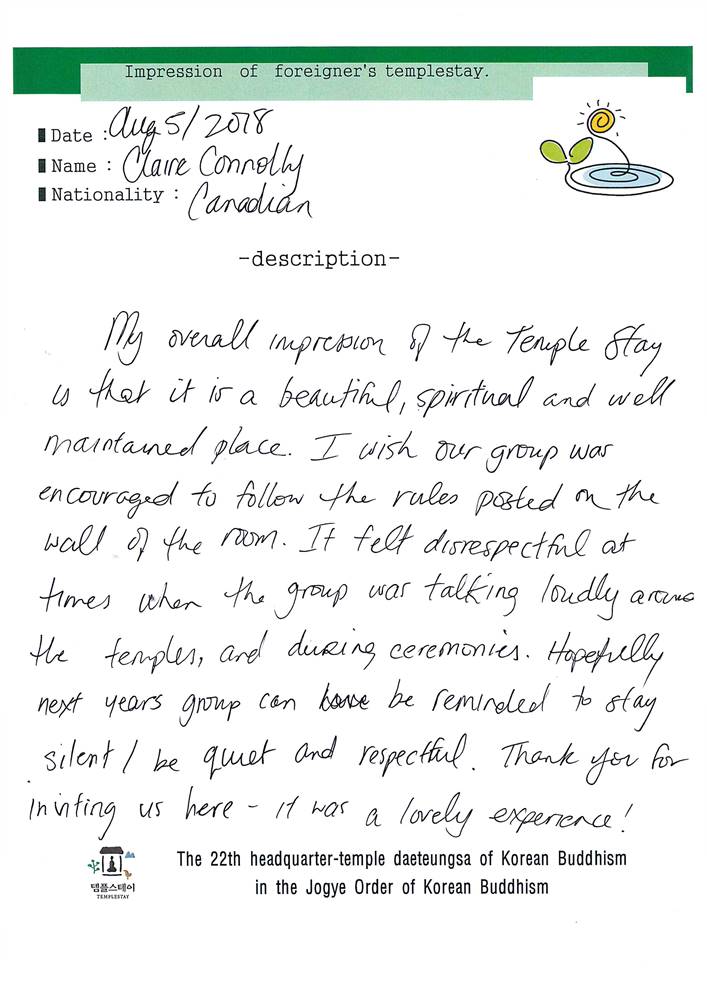 Impression of foreigner's templestay.
Date : Aug 5/2018
Name : Claire Connolly
Nationality : Canadian
-description-
My overall impression of the Temple Stay
is that it is a beautiful, spiritual and well
maintained place. I wish our group was
encouraged to follow the rules posted on the
wall of the room. It felt disrespectful at
times when the group was talking loudly around
the temples, and during ceremonies. Hopefully
next years group can be reminded to stay
silent / be quiet and respectful. Thank you for
inviting us here - it was a lovely experience!
템플스테이
TEMPLESTAY
The 22th headquarter-temple daeteungsa of Korean Buddhism
in the Jogye Order of Korean Buddhism